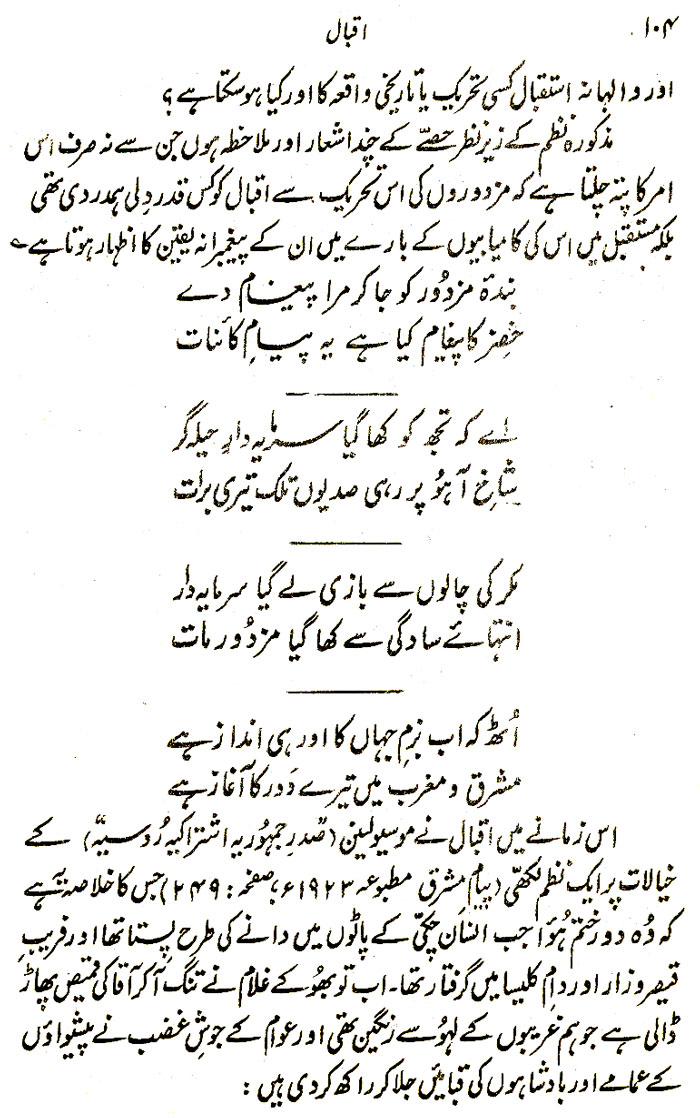 ۱۰۴ اقبال
اور والہانہ استقبال کسی تحریک یا تاریخی واقعہ کا اور کیا ہو سکتا ہے؟
مذکورہ نظم کے زیرِ نظر حصّے کے چند اشعار اور ملاحظہ ہوں جن سے نہ صرف اس
امر کا پتہ چلتا ہے کہ مزدوروں کی اس تحریک سے اقبال کو کس قدر دلی ہمدردی تھی
بلکہ مستقبل میں اس کی کامیابیوں کے بارے میں ان کے پیغمبرانہ یقین کا اظہار ہوتا ہے ؎
بندۂ مزدُور کو جا کر مرا پیغام دے
خضر کا پیغام کیا ہے یہ پیامِ کائنات
اے کہ تجھ کو کھا گیا سرمایہ دارِ حیلہ گر
شاخِ آہُو پر رہی صدیوں تلک تیری برات
مکر کی چالوں سے بازی لے گیا سرمایہ دار
انتہائے سادگی سے کھا گیا مزدُور مات
اُٹھ کہ اب بزمِ جہاں کا اور ہی انداز ہے
مشرق و مغرب میں تیرے دَور کا آغاز ہے
اس زمانے میں اقبال نے موسیولینن (صدرِ جمہُوریہ اشتراکیہ رُوسیہ) کے
خیالات پر ایک نظم لکھی (پیامِ مشرق مطبوعہ ۱۹۲۳ء، صفحہ : ۲۴۹) جس کا خلاصہ یہ ہے
کہ وُہ دور ختم ہُوا جب انسان چکّی کے پاٹوں میں دانے کی طرح پِستا تھا اور فریبِ
قیصر و زار اور دامِ کلیسا میں گرفتار تھا۔ اب تو بھُوکے غلام نے تنگ آ کر آقا کی قمیص پھاڑ
ڈالی ہے جو ہم غریبوں کے لہُو سے رنگین تھی اور عوام کے جوشِ غضب نے پیشواؤں
کے عمامے اور بادشاہوں کی قبائیں جلا کر راکھ کر دی ہیں :